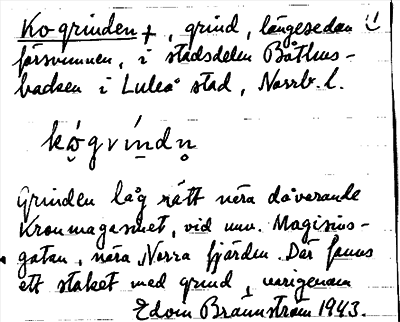 Kogrinden +, grind, längesedan
försvunnen, i stadsdelen Båthus-
backen i Luleå stad, Norrb. l.
Grinden låg rätt nära dåvarande
Kronmagasinet, vid nuv. Magasins-
gatan, nära Norra fjärden. Där fanns
ett staket med grind, varigenom
Edvin Brännström 1943.